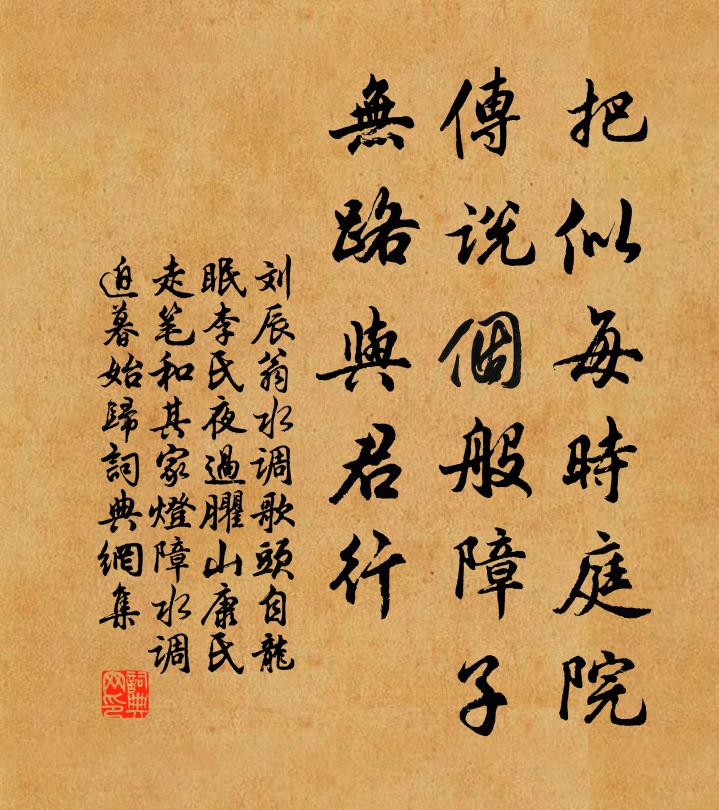 把似每時庭院
傳說個般障子
無路與君行
刘辰翁水调歌頭自龍
眠李氏夜過臞山康氏
走笔和其家燈障水调
迫暮始歸詞典網集
詞典网印